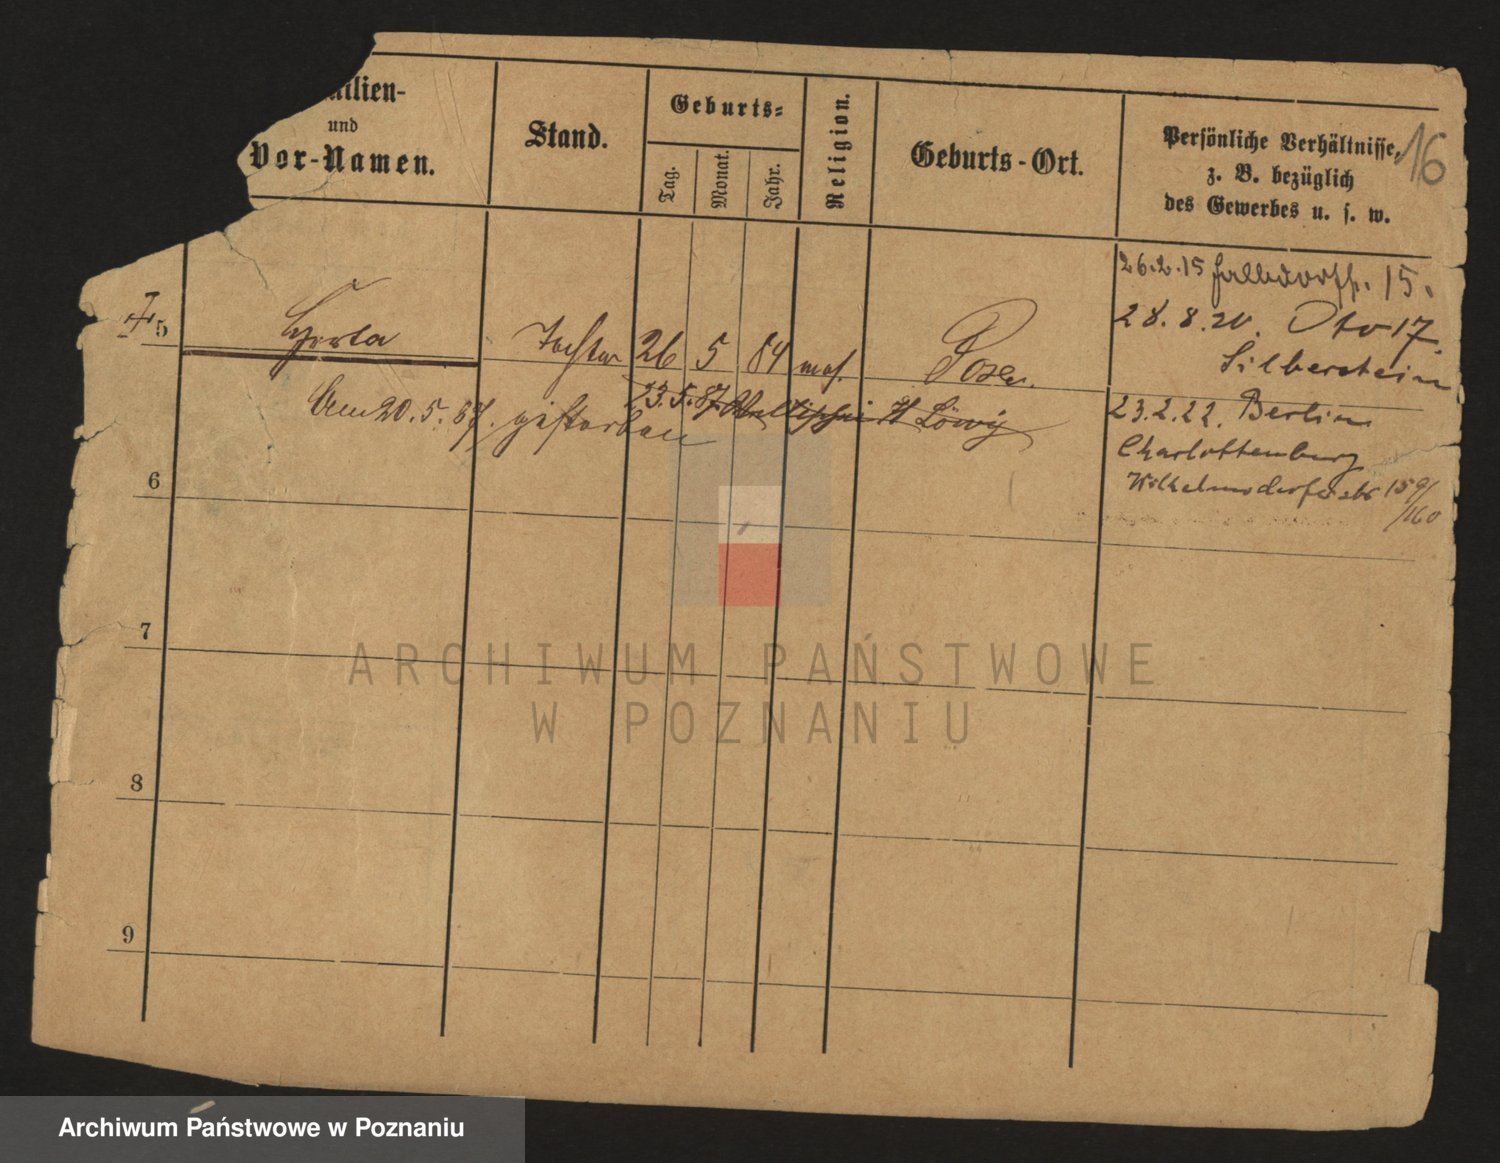 ilien-
und
Vor-Namen.
Stand.
Geburts-
Tag.
Monat.
Jahr.
Religion.
Geburts-Ort.
Persönliche Verhältnisse,
z. B. bezüglich
des Gewerbes u. s. w.
16
26.2.15 15.
28.8.20. Otto 17.
Silberstein
23.2.22. Berlin
Charlottenburg
Wilmersdorferstr 159/
/160
5 Tochter 26 5 84 mos. Posen.
Am 20.5.87. gestorben
23.5.87 Löwy
6
7
8
9
ARCHIWUM PAŃSTWOWE
W POZNANIU
Archiwum Państwowe w Poznaniu